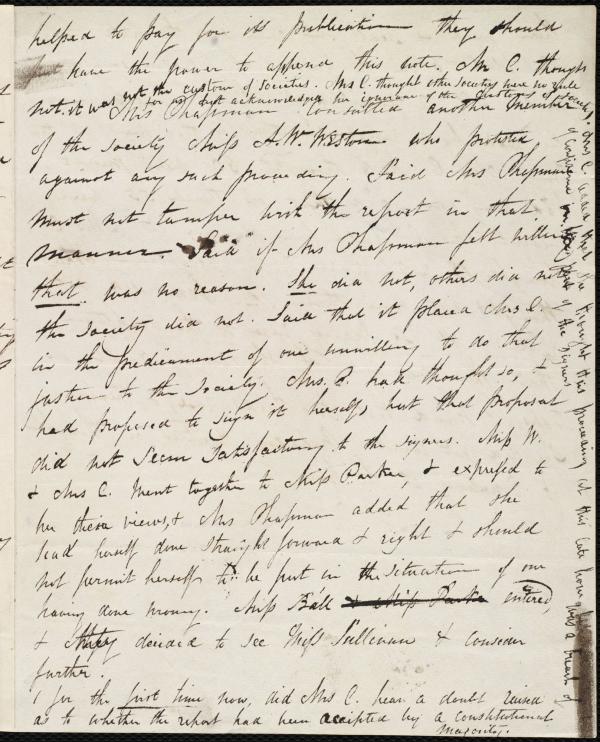 helped to pay for its publication they should
have the power to append this note. Mrs C. thought
not. it was not the custom of societies. Mrs C. thought other societies were no rule
for us & kept acknowledging her ignorance of the
Mrs Chapman consulted another member
of the society Miss A. W. Weston who protested
against any such proceeding. Said Mrs Chapman
must not tamper with the report in that
manner. Said if Mrs Chapman felt willing
that was no reason. She did not, others did not
the society did not. Said that it placed Mrs C.
in the predicament of one unwilling to do that
justice to the Society. Mrs. C. had thought so, &
had proposed to sign it herself, but that proposal
did not seem satisfactory to the signers. Miss W.
& Mrs C. went together to Miss Parker, & expressed to
her their views, & Mrs Chapman added that she
had herself done straight forward & right & should
not permit herself to be put in the situation of one
having done wrong. Miss Ball & Miss Parker entered,
& they decided to see Miss Sullivan & consider
further.
& for the first time now, did Mrs C. hear a doubt raised
as to whether the report had been accepted by a constitutional
majority.
Mrs C. she thought this proceeding at this late hour was a breach of
of confidence on the part of the signers